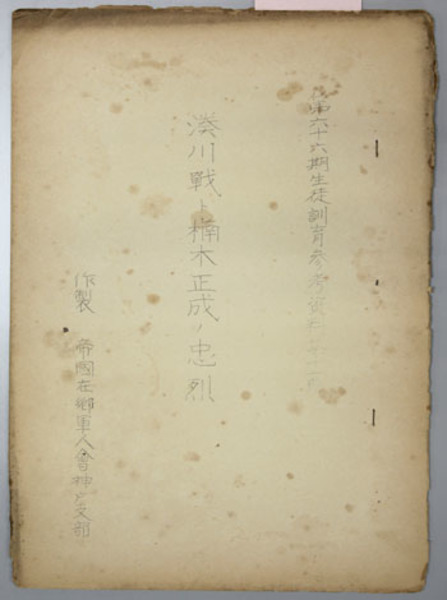 第六十六期生徒訓育参考資料
湊川戰ト楠木正成ノ忠烈
作製 帝國在郷軍人會神戸支部